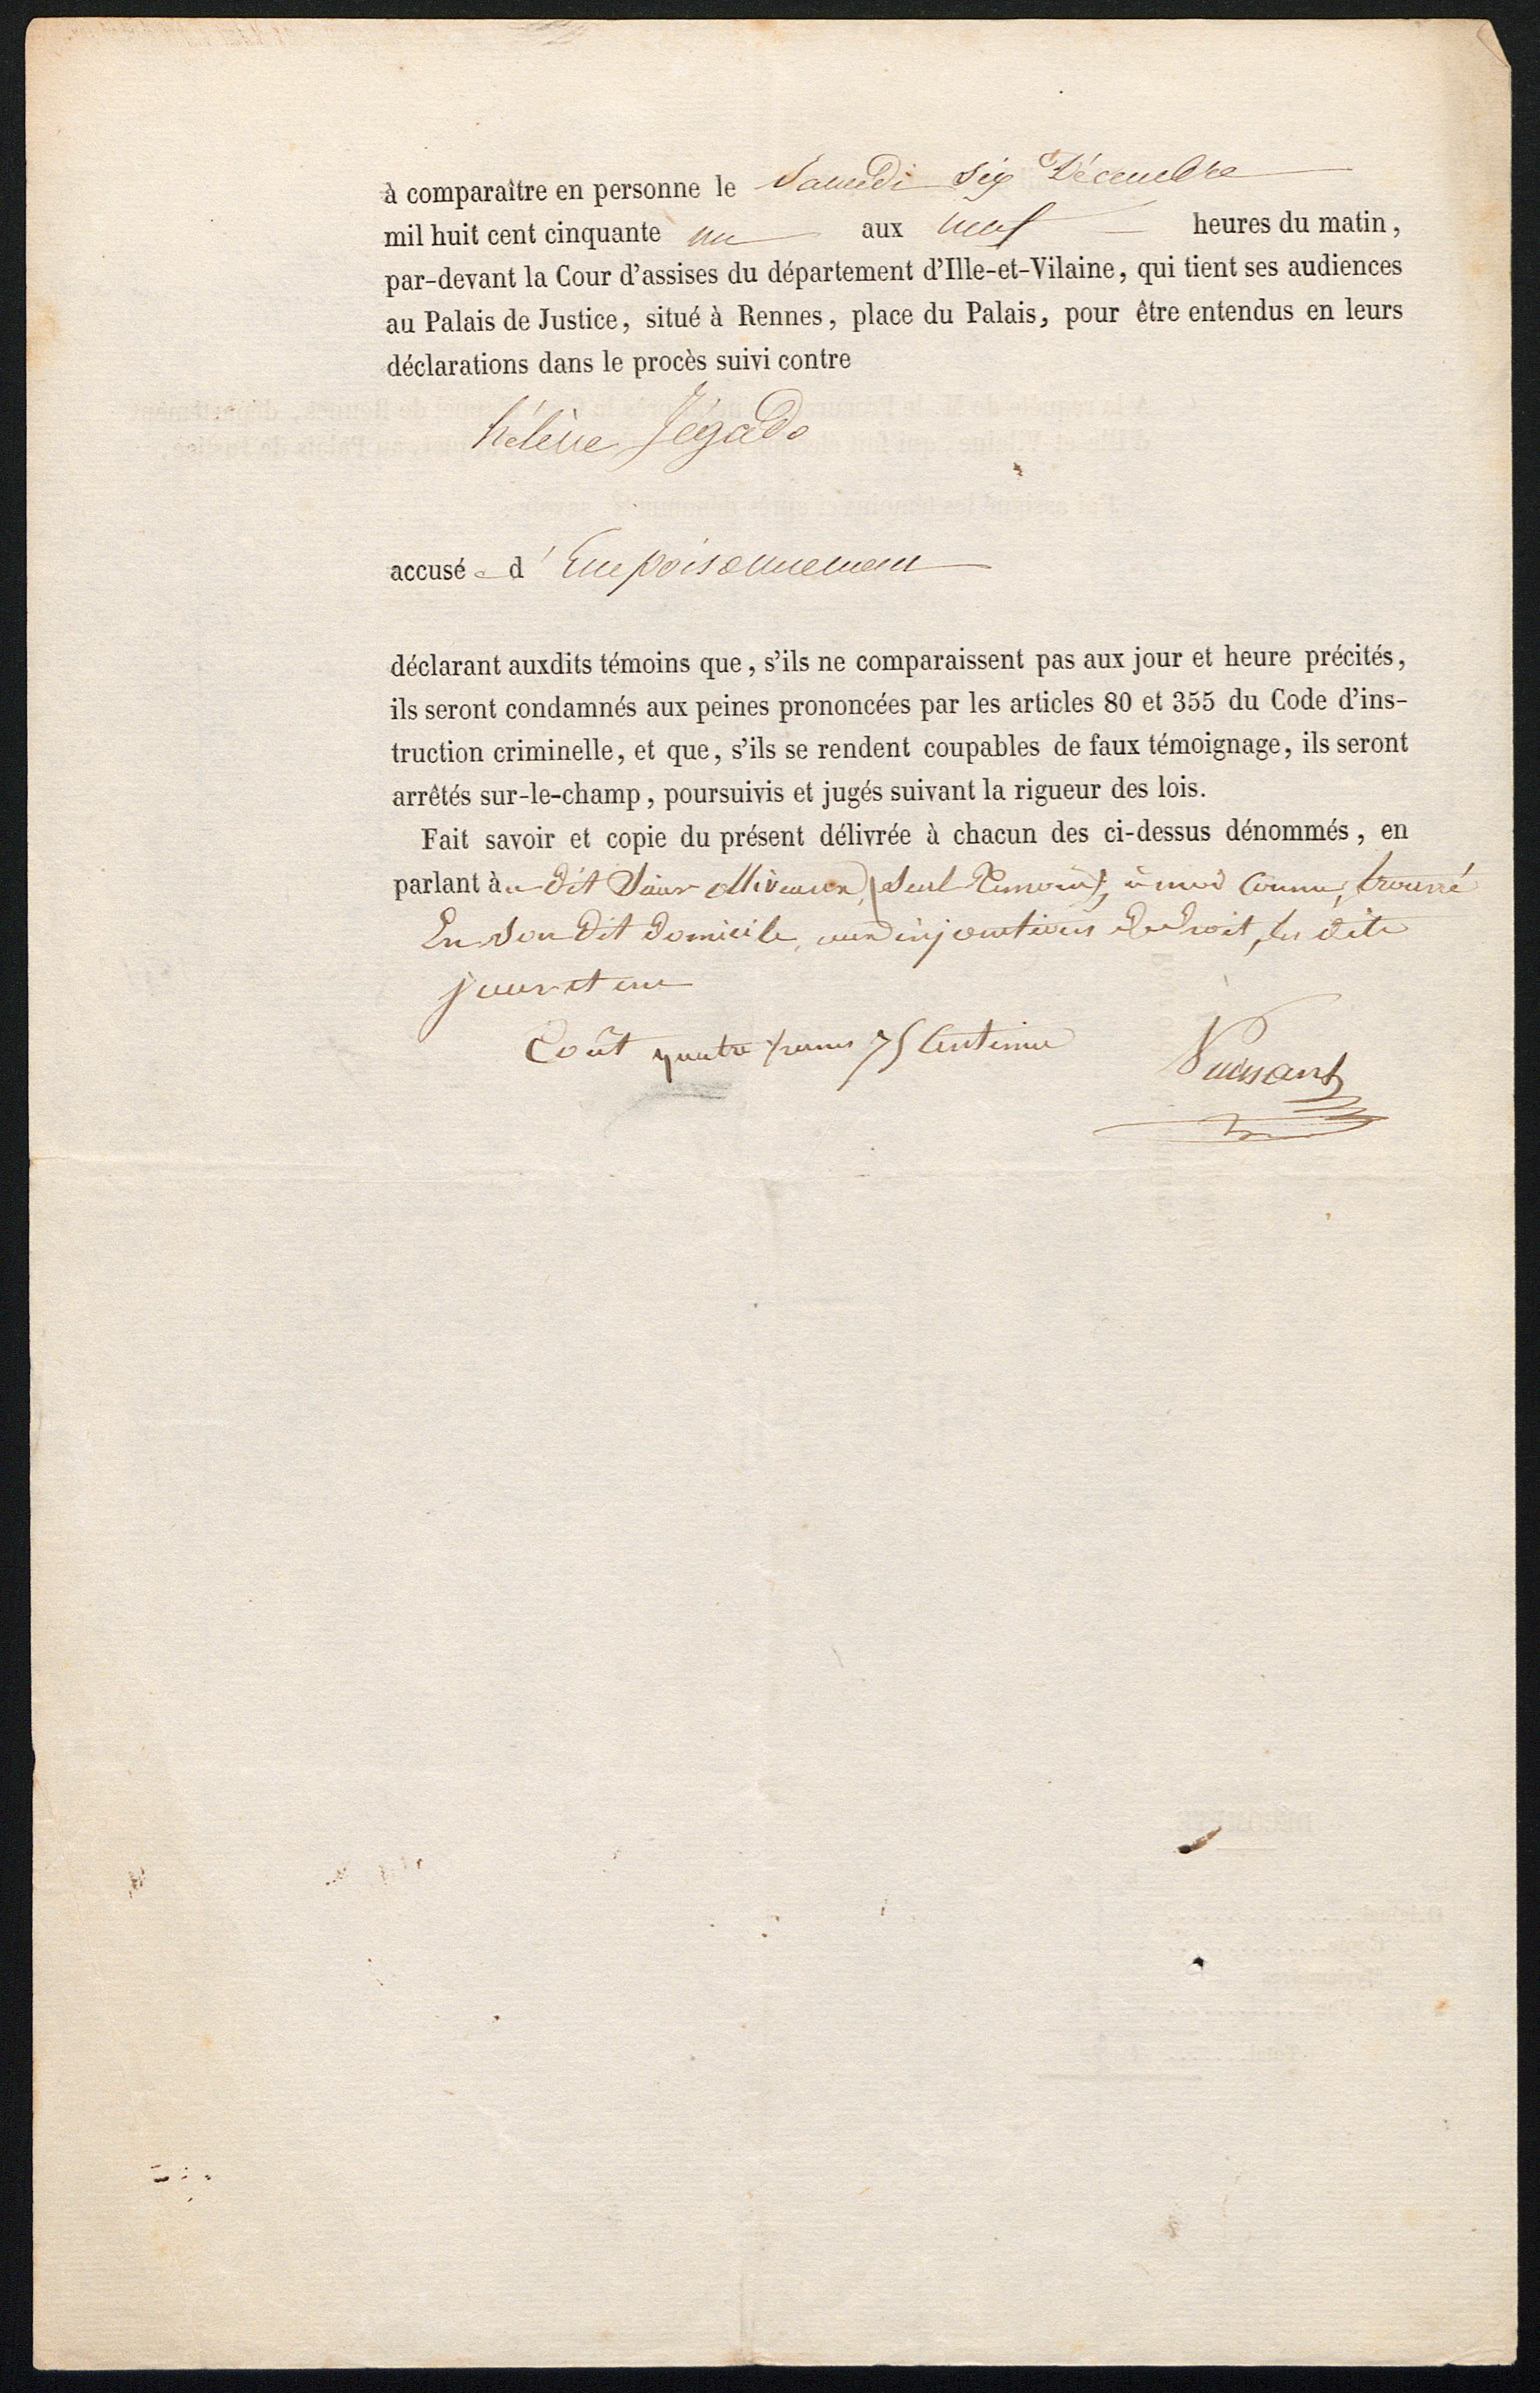 à comparaître en personne le Samedi Six Décembre
mil huit cent cinquante un aux neuf heures du matin,
par-devant la Cour d'assises du département d'Ille-et-Vilaine, qui tient ses audiences
au Palais de Justice, situé à Rennes, place du Palais, pour être entendus en leurs
déclarations dans le procès suivi contre
hélène Jégado
accusée d'Empoisonnement
déclarant auxdits témoins que, s'ils ne comparaissent pas aux jour et heure précités,
ils seront condamnés aux peines prononcées par les articles 80 et 355 du Code d'ins-
truction criminelle, et que, s'ils se rendent coupables de faux témoignage, ils seront
arrêtés sur-le-champ, poursuivis et jugés suivant la rigueur des lois.
Fait savoir et copie du présent délivrée à chacun des ci-dessus dénommés, en
parlant au dit Sieur seul témoin, à moi connu, trouvé
En son dit domicile, injonctions de droit, les dits
jour et an
Coût quatre francs 75 Centimes